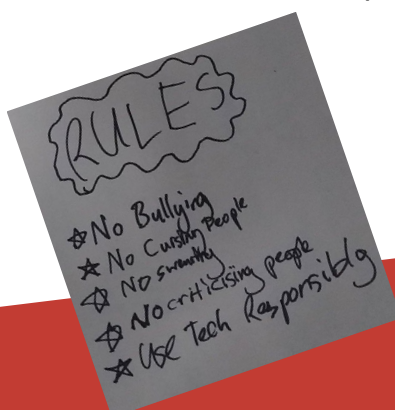 RULES
No Bullying
No People
No
No criticising people
Use Tech Responsibly